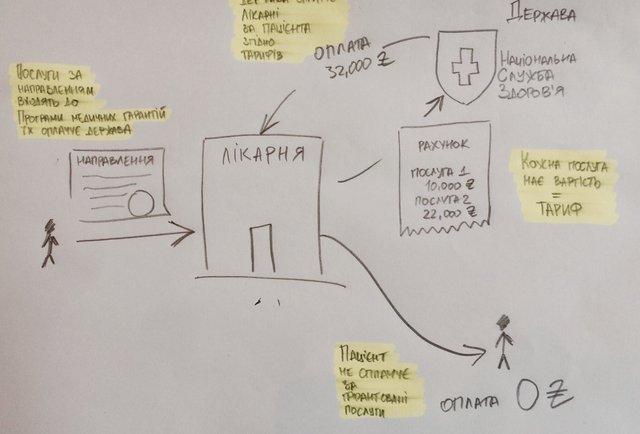 лікарні
за пацієнта
згідно
тарифів
оплата
32,000 ₴
Держава
Національна
Служба
Здоров'я
Послуги за
направленням
входять до
Програми медичних гарантій
їх оплачує держава
направлення
лікарня
рахунок
послуга 1
10,000 ₴
послуга 2
22,000 ₴
Кожна послуга
має вартість
=
тариф
Пацієнт
не сплачує
за
послуги
оплата 0 ₴